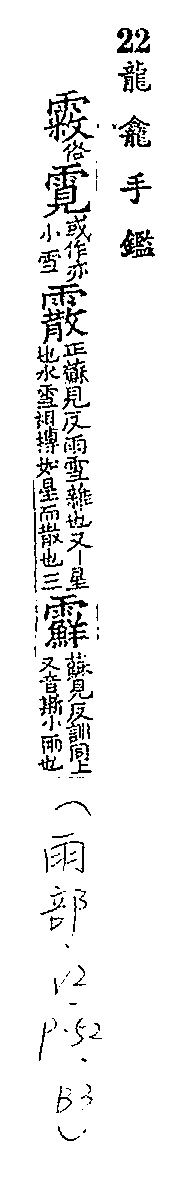 22龍龕手鑑
俗䨘或作亦小雪霰正蘇見反雨雪雜也又丨星也水雪相搏如星而散也三䨷蘇見反訓同上又音撕小雨也
(雨部.V2-P.52.B3)